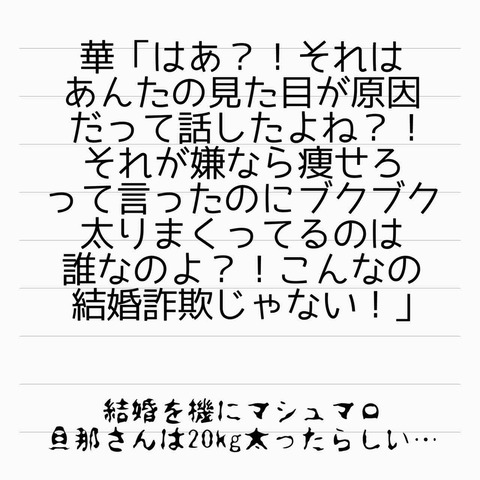 華「はあ？！それは
あんたの見た目が原因
だって話したよね？！
それが嫌なら痩せろ
って言ったのにブクブク
太りまくってるのは
誰なのよ？！こんなの
結婚詐欺じゃない！」
結婚を機にマシュマロ
旦那さんは20kg太ったらしい…